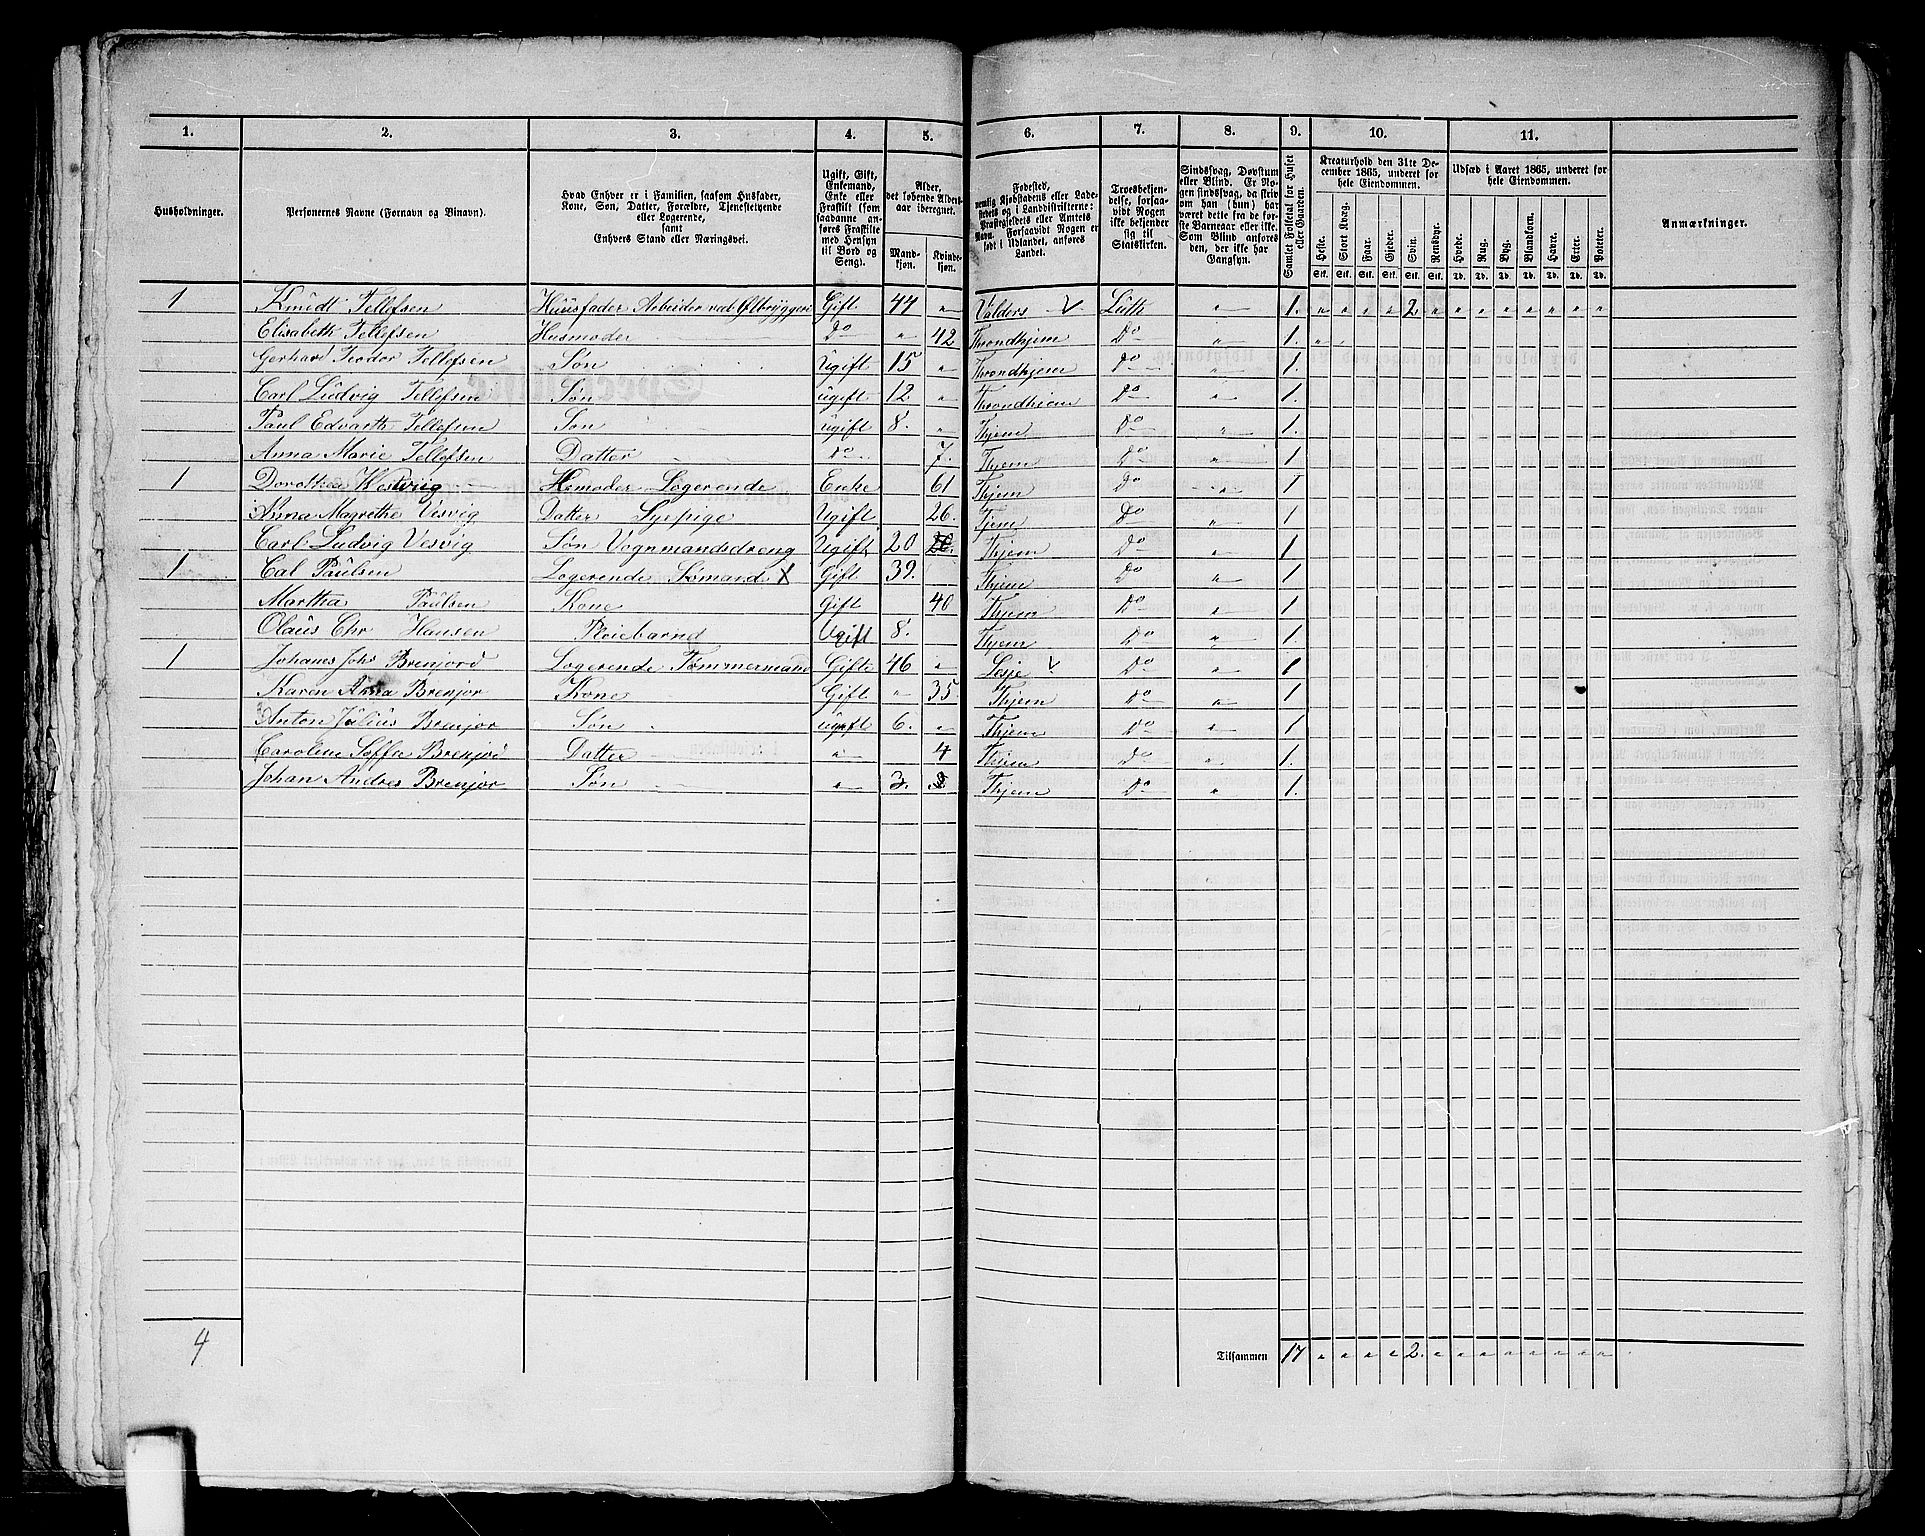 1. 2. 3. 4. 5. 6. 7. 8. 9. 10. 11.
Husholdninger. | Personernes Navne (Fornavn og Binavn). | Hvad Enhver er i Familien, saasom Husfader, Kone, Søn, Datter, Forældre, Tjenestetyende eller Logerende, samt Enhvers Stand eller Næringsvei. | Ugift, Gift, Enkemand, Enke eller Fraskilt (som saadanne anføres Fraskilte med Hensyn til Bord og Seng). | Alder, det løbende Aldersaar iberegnet. Mandkjøn. Kvindekjøn. | Fødested, nemlig Kjøbstadens eller Ladestedets og i Landdistrikterne: Præstegjeldets eller Amtets Navn. Forsaavidt Nogen er født i Udlandet, anføres Landet. | Troesbekjendelse, forsaavidt Nogen ikke bekjender sig til Statskirken. | Sindssvag, Døvstum eller Blind. Er Nogen sindssvag, da skrives om han (hun) har været dette fra de første Barneaar eller ikke. Som Blind anføres den, der ikke har Gangsyn. | Samlet Folketal for Huset eller Gaarden. | Kreaturhold den 31te December 1865, underet for hele Eiendommen. Heste. Stort Kvæg. Faar. Gjeder. Svin. Rensdyr. | Udsæd i Aaret 1865, underet for hele Eiendommen. Hvede. Rug. Byg. Blandkorn. Havre. Erter. Poteter. | Anmærkninger.
Stk. Stk. Stk. Stk. Stk. Stk. Td. Td. Td. Td. Td. Td. Td.
1 Knudt Tellefsen Huusfader Arbeider ved Ølbryggeri Gift 44 " Valders Luth " 1. " " " " 2 " " " " " " " "
Elisabeth Tellefsen Husmoder Do " 42 Trondhjem Do " 1. " "
Gerhard Teodor Tellefsen Søn Ugift 15 " Trondhjem Do " 1.
Carl Ludvig Tellefsen Søn ugift 12 " Trondhjem Do " 1.
Paul Edvarth Tellefsen Søn ugift 8. " Thjem Do " 1.
Anna Marie Tellefsen Datter Do 7. Thjem Do " 1
1 Dorothea Westvig Hsmoder Logerende Enke 61 Thjem Do " 1
Anna Magrethe Visvig Datter Syepige Ugift 26. Tjem Do " 1
Carl Ludvig Visvig Søn Vognmandsdreng Ugift 20 Thjem Do " 1
1 Cal Paulsen Logerende Sømand X Gift 39. Thjem Do " 1
Martha Paulsen Kone Gift 40 Thjem Do " 1
Olaus Chr Hansen Pleiebarnd Ugift 8. Thjem Do " 1.
1 Johanes Johs Brenjord Logerende Tømmermand Gifte 46 " Lesje Do " 1
Karen Anna Brenjor Kone Gift " 35. Thjem Do " 1
Anton Julius Brenjor Søn ugift 6. " Thjem Do " 1
Caroline Soffie Brenjor Datter " 4 Thjem Do " 1.
Johan Andres Brenjor Søn " 3. Thjem Do " 1.
4
Tilsammen 17 " " " " 2. " " " " " " " "